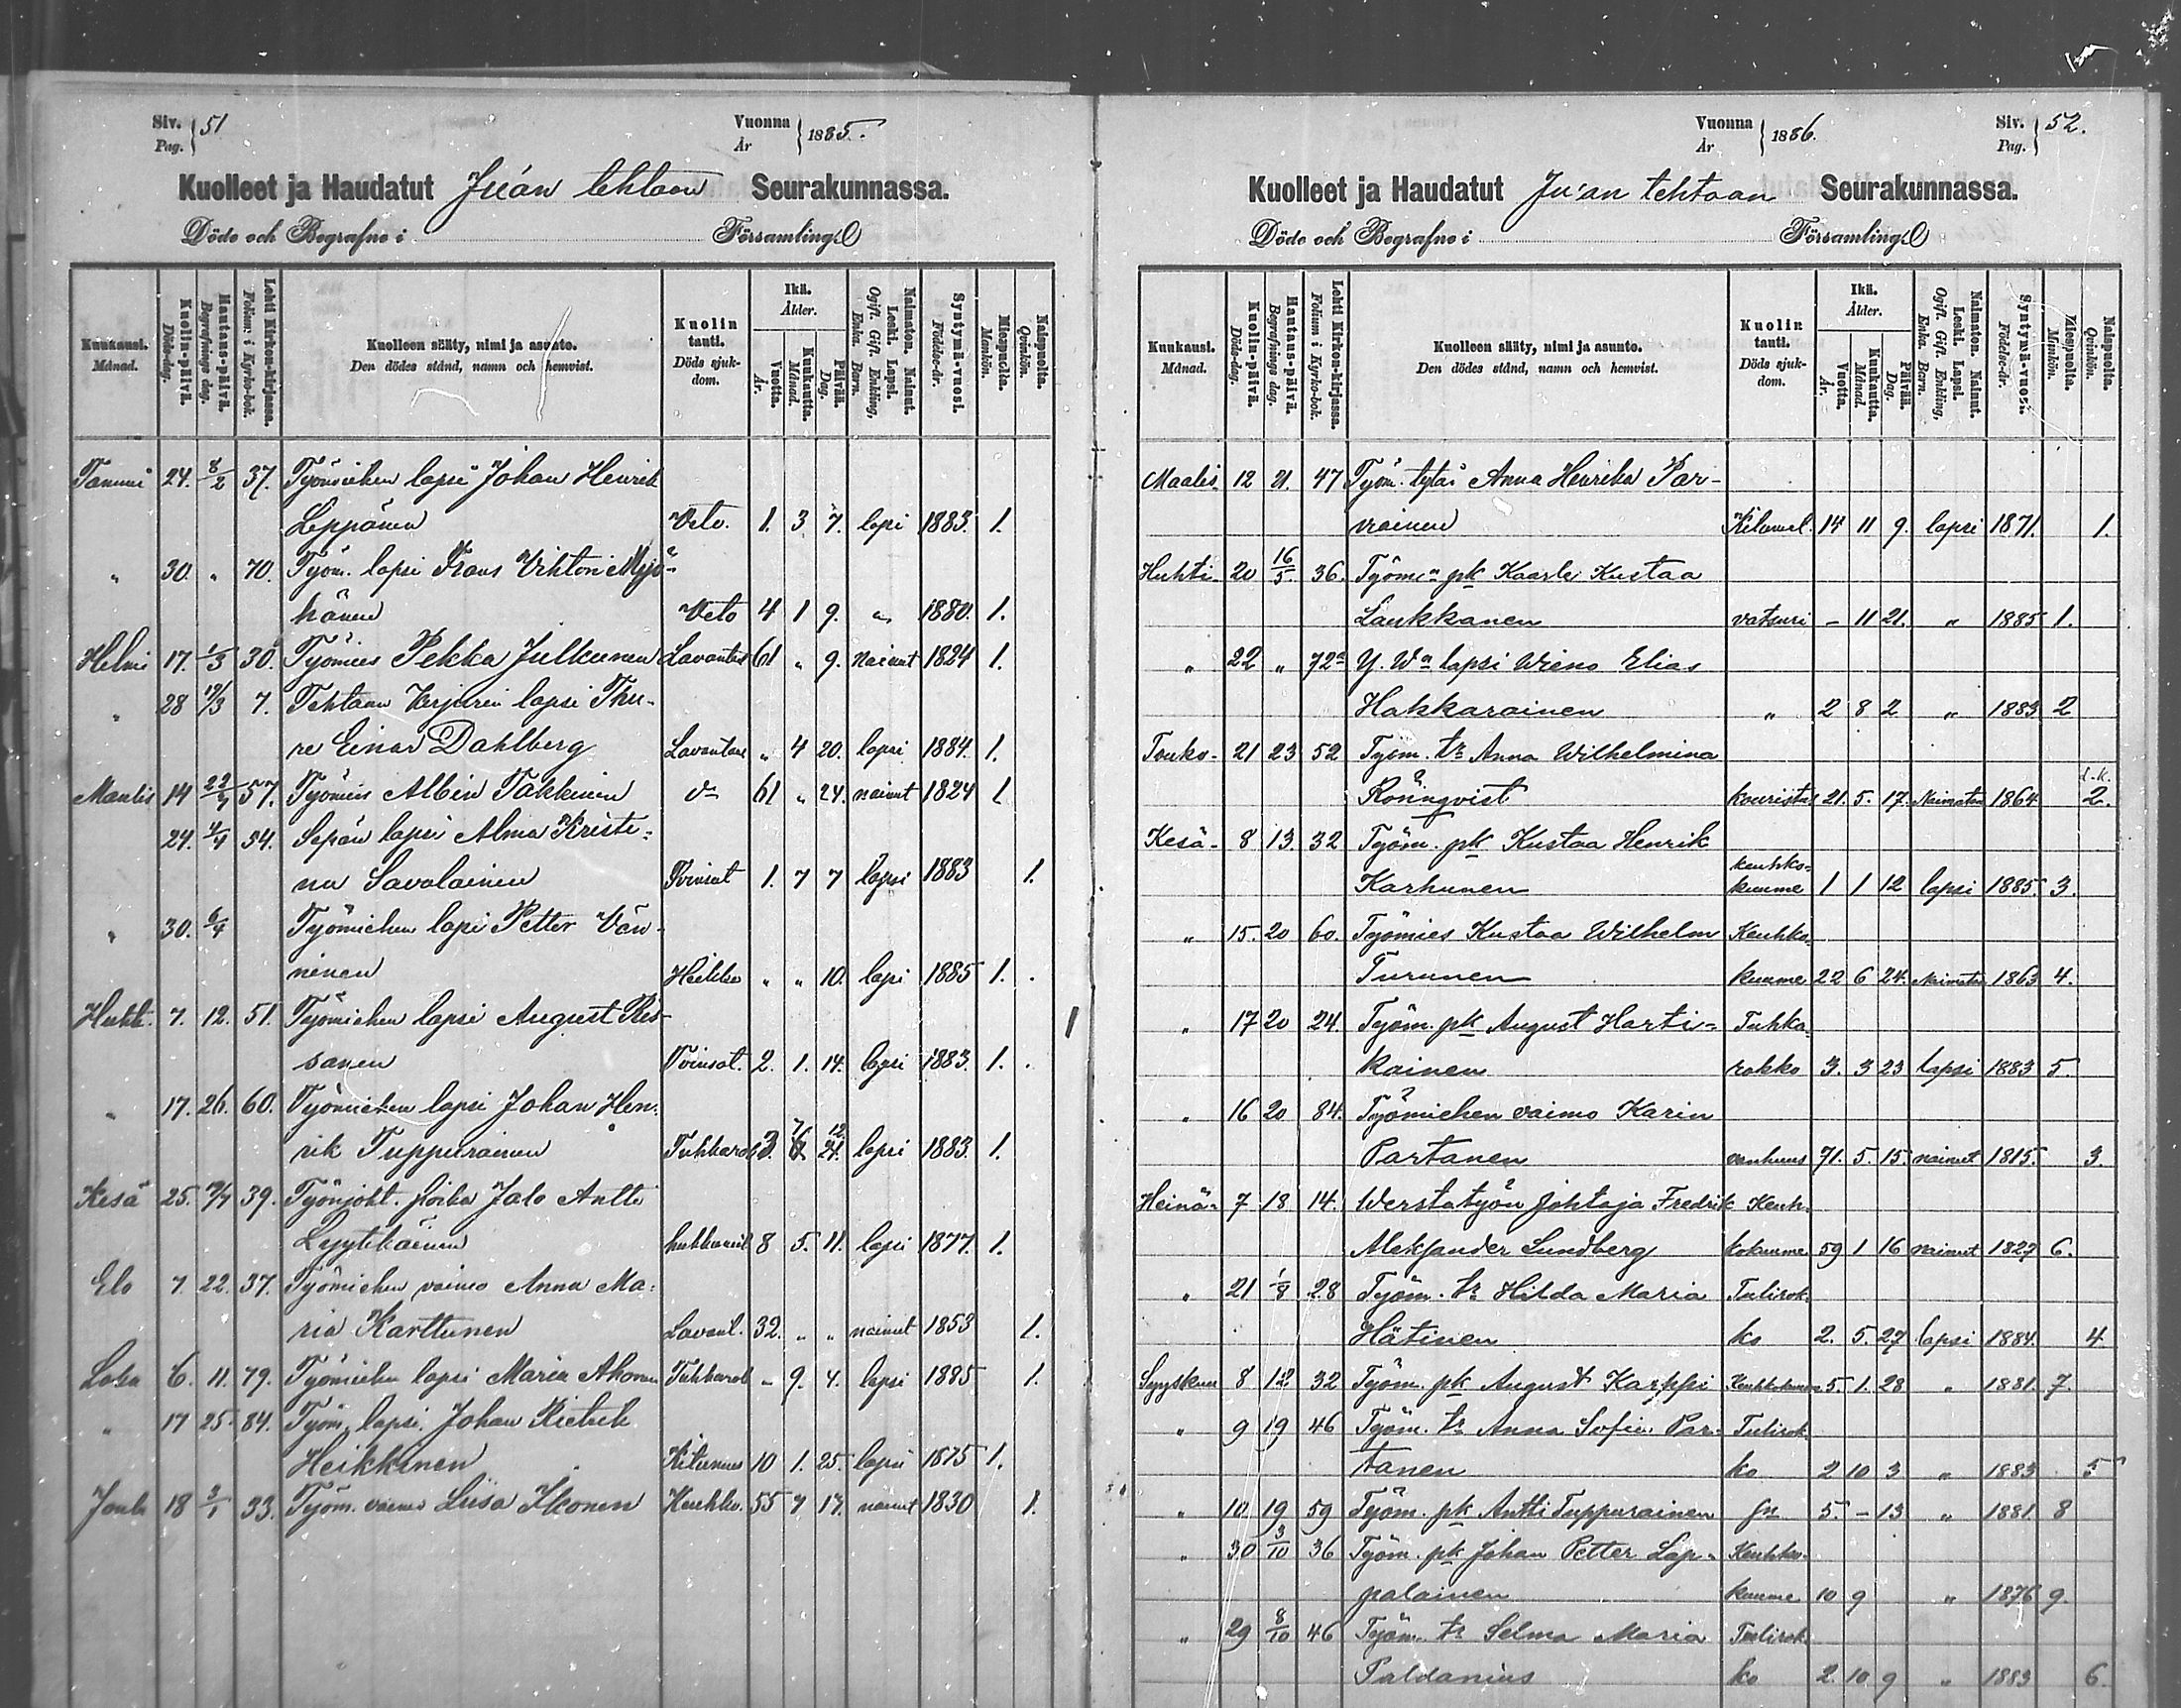 Siv. 51 Vuonna 1885.
Pag. År
Kuolleet ja Haudatut Juán tehtaan Seurakunnassa.
Döde och Begrafne i Församling
Kuukausi. Månad. Kuolin-päivä. Döds-dag. Hautaus-päivä. Begrafnings dag. Lehti Kirkon-kirjassa. Folium i Kyrko-bok. Kuolleen sääty, nimi ja asunto. Den dödes stånd, namn och hemvist. Kuolin tauti. Döds sjukdom. Ikä. Ålder. Vuotta. År. Kuukautta. Månad. Päivää. Dag. Naimaton. Nainut. Leski. Lapsi. Ogift. Gift. Enkling, Enka. Barn. Syntymä-vuosi. Födelse-år. Miespuolta. Mankön. Naispuolta. Qvinkön.
Tammi 24. 8/2 37. Työmiehen lapsi Johan Henrik
Leppänen Veto. 1. 3 7. lapsi 1883. 1.
" 30. " 70. Työm. lapsi Frans Vihtori Myö-
hänen Veto 4 1 9. " 1880. 1.
Helmi 17. 1/3 30. Työmies Pekka Julkunen Lavantaut 61 " 9. nainut 1824 1.
" 28 7. Tehtaan Kirjurin lapsi Thu-
re Einar Dahlberg Lavantaut " 4 20. lapsi 1884. 1.
Maalis 14 57. Työmies Albin Takkinen 61 " 24. nainut 1824 1
24. 4/4 54. Sepän lapsi Alma Kristi-
na Savolainen 1. 7 7 lapsi 1883 1.
" 30. 6/4 Työmiehen lapsi Petter Vän-
ninen Heikko " " 10. lapsi 1885 1.
Huhti. 7. 12. 51. Työmiehen lapsi August Ris-
sanen 2. 1. 14. lapsi 1883. 1.
" 17. 26. 60. Työmiehen lapsi Johan Hen-
rik Tuppurainen Tuhkarok 3. lapsi 1883. 1.
Kesä 25. 39. Työnjoht. poika Jalo Antti
Lyytikäinen 8 5. 11. lapsi 1877. 1.
Elo 7. 22. 37. Työmiehen vaimo Anna Ma-
ria Karttunen Lavant. 32. " " nainut 1853 1.
Loka 6. 11. 79. Työmiehen lapsi Maria Ahonen Tuhkarok - 9. 4. lapsi 1885 1.
" 17 25. 84. Työm. lapsi Johan
Heikkinen Kitumus 10 1. 25. lapsi 1875 1.
Joulu 18 3/1 33. Työm. vaimo Liisa Ikonen Keuhko. 55 7 17. nainut 1830 1.
Vuonna 1886. Siv. 52.
År Pag.
Kuolleet ja Haudatut Ju'an tehtaan Seurakunnassa.
Döde och Begrafne i Församling
Kuukausi. Månad. Kuolin-päivä. Döds-dag. Hautaus-päivä. Begrafnings dag. Lehti Kirkon-kirjassa. Folium i Kyrko-bok. Kuolleen sääty, nimi ja asunto. Den dödes stånd, namn och hemvist. Kuolin tauti. Döds sjukdom. Ikä. Ålder. Vuotta. År. Kuukautta. Månad. Päivää. Dag. Naimaton. Nainut. Leski. Lapsi. Ogift. Gift. Enkling, Enka. Barn. Syntymä-vuosi. Födelse-år. Miespuolta. Mankön. Naispuolta. Qvinkön.
Maalis. 12 21. 47 Työm. tytär Anna Henrika Par-
viainen 14 11 9. lapsi 1871. 1.
Huhti- 20 16/5. 36. Työmn pk Kaarle Kustaa
Laukkanen vatsuri - 11 21. " 1885 1.
" 22 " 72a Y. Wn lapsi Wieno Elias
Hakkarainen " 2 8 2 " 1883 2
Touko- 21 23 52 Työm. tr Anna Wilhelmina
Rönnqvist kouristus 21. 5. 17. Naimaton 1864 2.
Kesä- 8 13. 32 Työm. pk Kustaa Henrik
Karhunen keuhkokuume 1 1 12 lapsi 1885. 3.
" 15. 20 60. Työmies Kustaa Wilhelm Keuhko-
Turunen kuume 22 6 24. Naimaton 1863 4.
" 17 20 24. Työm. pk August Harti- Tuhka-
kainen rokko 3. 3 23 lapsi 1883 5.
" 16 20 84. Työmiehen vaimo Karin
Partanen vanhuus 71. 5. 15. nainut 1815. 3.
Heinä- 7 18. 14. Werstatyön johtaja Fredrik Keuh-
Aleksander Lundberg kokuume 59 1 16 nainut 1827 6.
" 21 1/8 28 Työm. tr Hilda Maria Tulirok-
Hätinen ko 2. 5. 27 lapsi 1884. 4.
Syyskuu 8 12 32 Työm. pk August Karppi Keuhkokuume 5. 1. 28 " 1881. 7.
" 9 19 46 Työm. tr Anna Sofia Par- Tulirok-
tanen ko 2 10 3 " 1883 5
" 10 19 59 Työm. pk Antti Tuppurainen 5. - 13 " 1881. 8
" 30 3/10 36 Työm. pk Johan Petter Lap- Keuhko-
palainen kuume 10 9 " 1876 9.
" 29 8/10 46 Työm. tr Selma Maria Tulirok-
Paldanius ko 2. 10 9 " 1883 6.